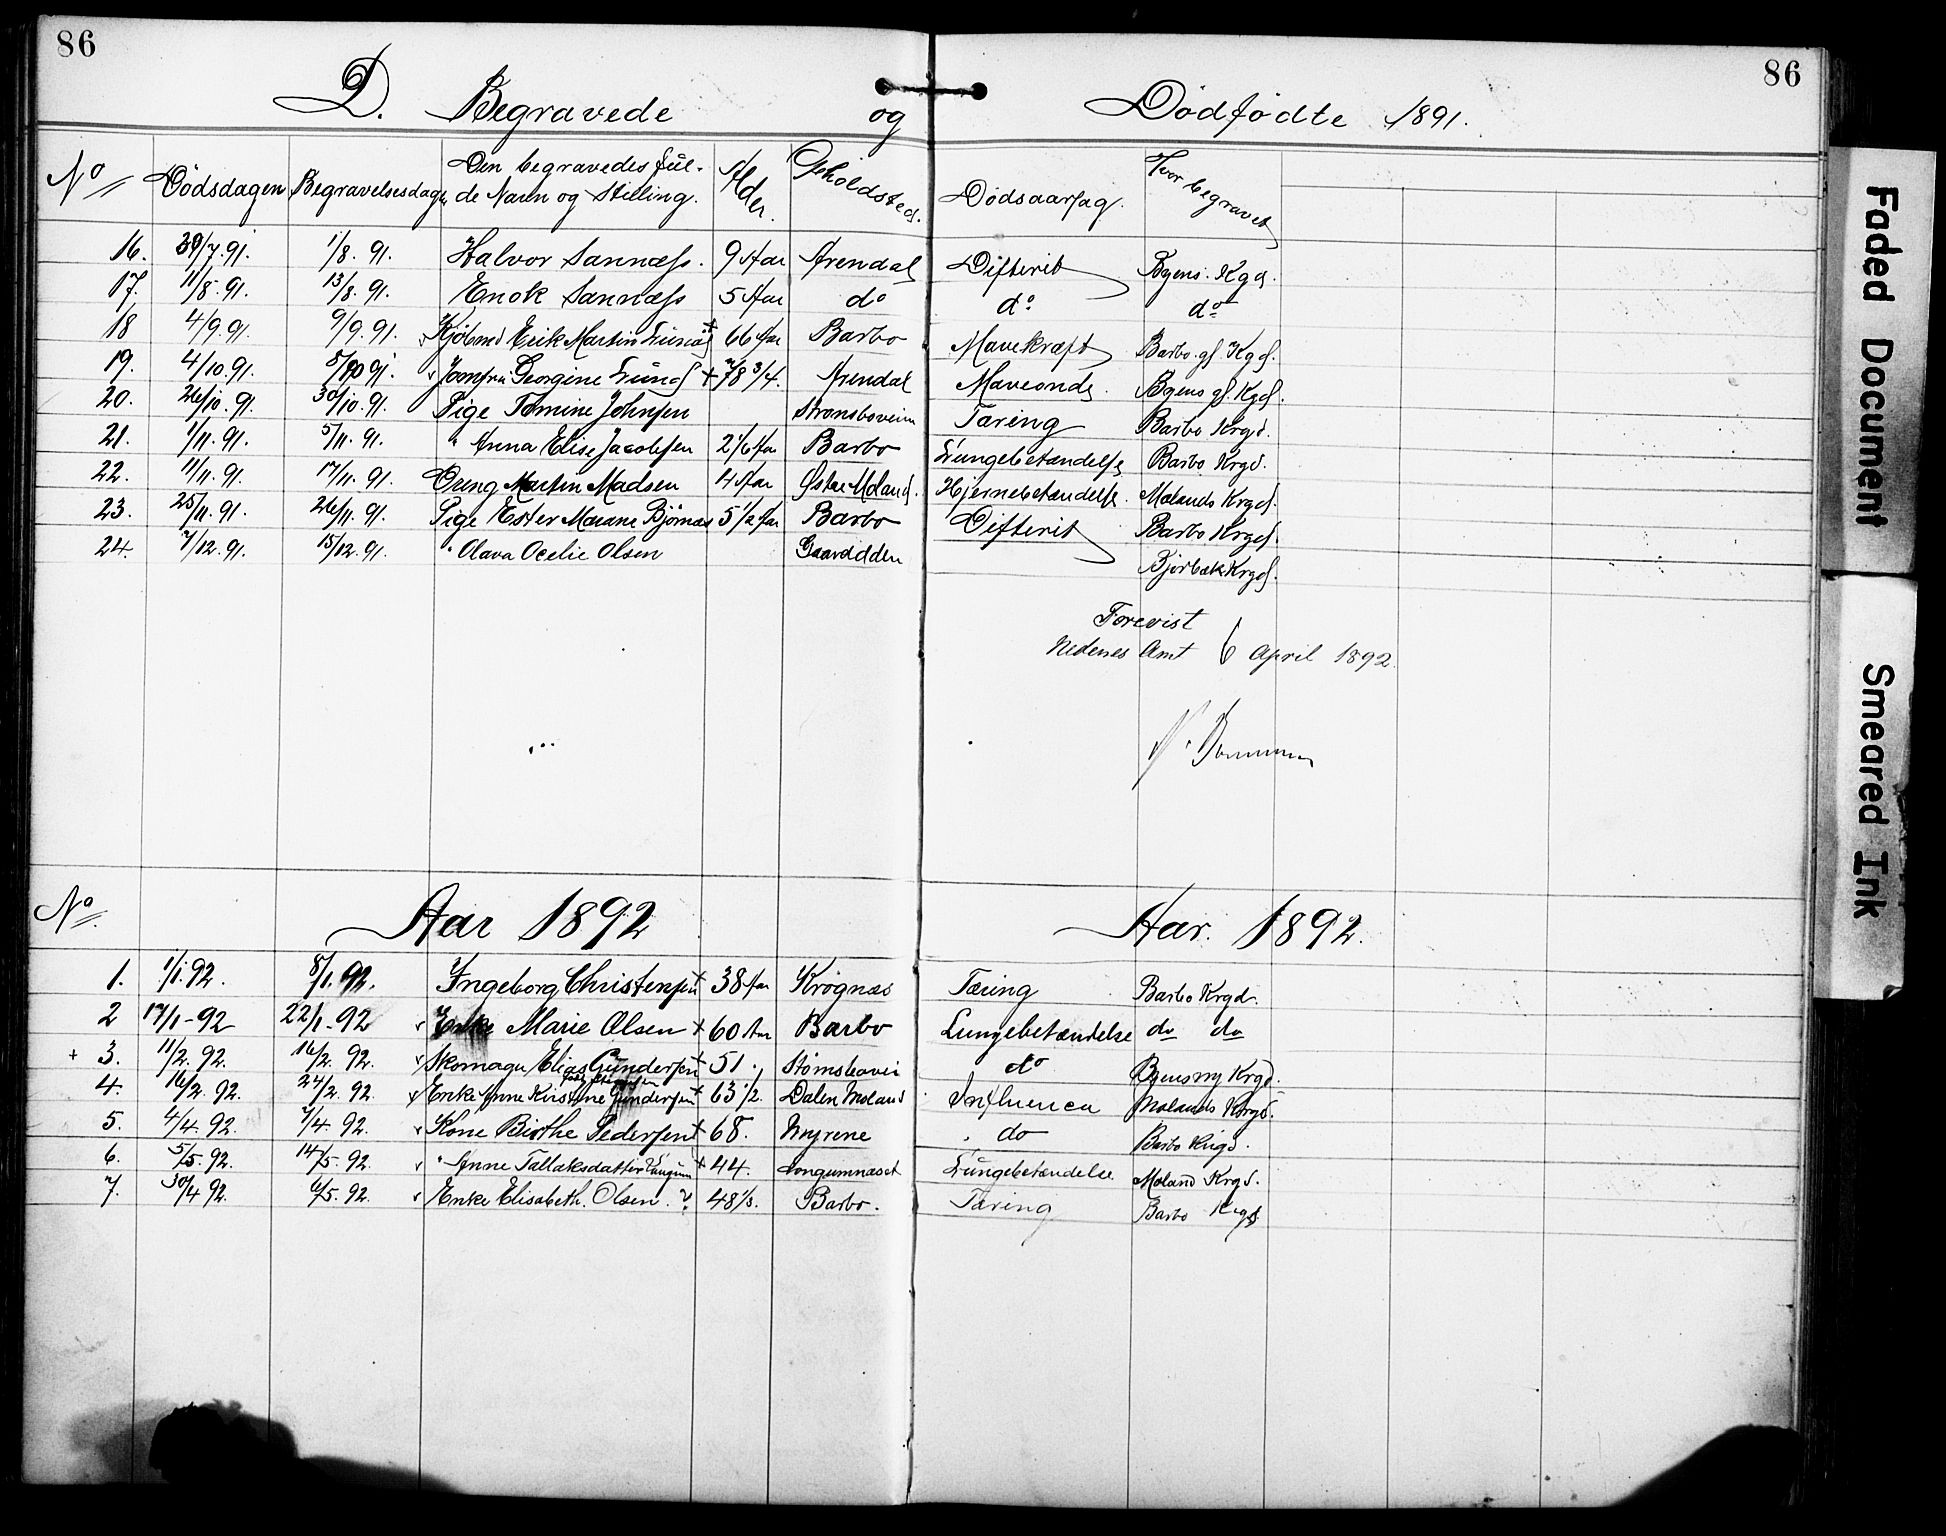 86
86
D. Begravede og Dødfødte 1891.
No Dødsdagen Begravelsesdagen Den begravedes ful- Alder. Opholdsted. Dødsaarsag. Hvor begravet
de Navn og Stilling.
16. 30/7.91. 1/8. 91. Halvor Sannæss. 9 Aar Arendal Difterit Byens. Kgd.
17. 11/8. 91. 13/8. 91. Enok Sannæss 5 Aar do do do
18 4/9.91. 9/9.91. Kjøbmd Erik Martin 66 Aar Barbo Mavekræft Barbo gl. Kgd.
19. 4/10.91. 8/10 91. Jomfru Georgine Lund + 78 3/4. Arendal Maveonde. Byens gl. Kgd.
20. 26/10.91. 30/10.91. Pige Tomine Johnsen Strømsboveien Tæring Barbo Krgd.
21. 1/11. 91. 5/11. 91. " Anna Elise Jacobsen 2 1/6 Aar Barbo Lungebetændelse Barbo Krgd.
22. 11/11. 91. 17/11. 91. Gung Martin Madsen 4 Aar Østre Moland. Hjernebetændelse. Molands Krgd.
23. 25/11.91. 26/11. 91. Pige Ester Marane Bjørnæs 5 1/2 Aar Barbo Difterit Barbo Krgd.
24. 7/12.91. 15/12.91. " Olava Ocelie Olsen Gaardalen Bjorbæk Krgd.
Forevist
Nedenes Amt 6 April 1892.
No. Aar 1892 Aar. 1892.
1. 1/1.92. 8/1.92. Ingeborg Christensen + 38 Aar Krøgnæs Tæring Barbo Krgd.
2 17/1-92 22/1-92 v Enke Marie Olsen + 60 Aar Barbo Lungebetændelse do do
+ 3. 11/2. 92. 16/2. 92. v Skomager Elias Gundersen + 51. Strømsbovei do Byens ny Krgd.
4. 16/2. 92. 24/2. 92. v Enke Anne Kirstine Gundersen + 63 1/2. Dalen Moland Influenca Molands Krgd.
5. 4/4. 92. 7/4. 92. v Kone Birthe Pedersen + 68. Myrene do Barbo Krgd.
6. 5/5.92. 14/5. 92. v " Anne Tallaksdatter Langum + 44. Longumnæset Lungebetændelse Moland Krgd.
7. 30/4 92. 6/5. 92. v Enke Elisabeth. Olsen. ? 48 1/3. Barbo. Tæring Barbo Krgd
Faded Document
Smeared Ink